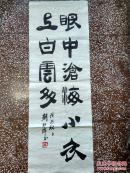 眼中滄海小衣
上白雲多